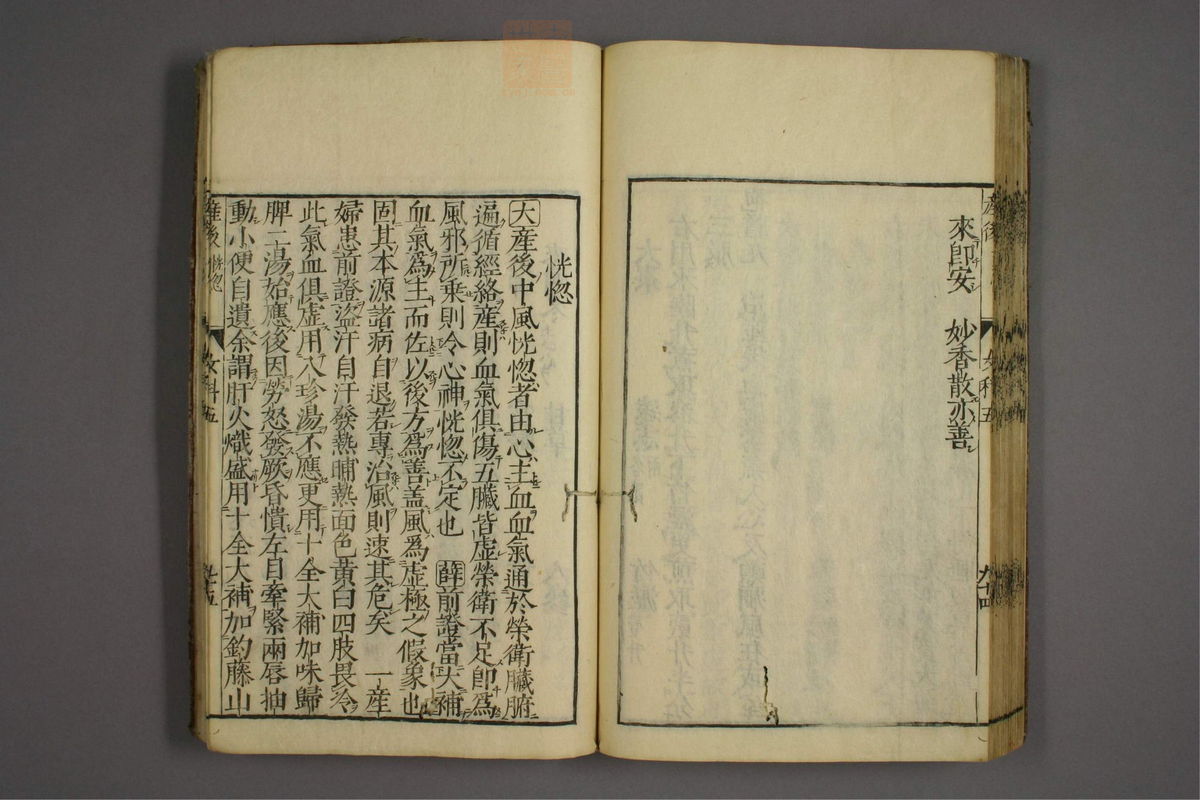 來卽安　妙香散亦善
恍惚
大產後中風恍惚者由心主血血氣通於榮衛臟腑
遍循經絡產則血氣俱傷五臟皆虛榮衛不足卽爲
風邪所乘則令心神恍惚不定也　薛前證當大補
血氣爲主而佐以後方爲善盖風爲虛極之假象也
固其本源諸病自退若專治風則速其危矣　一產
婦患前證盜汗自汗發熱晡熱面色黃白四肢畏冷
此氣血俱虛用八珍湯不應更用十全大補加味歸
脾二湯始應後因勞怒發厥昏憒左目牽緊兩唇抽
動小便自遺余謂肝火熾盛用十全大補加釣藤山
產後　恍惚　女科五
產後　女科五　九十四